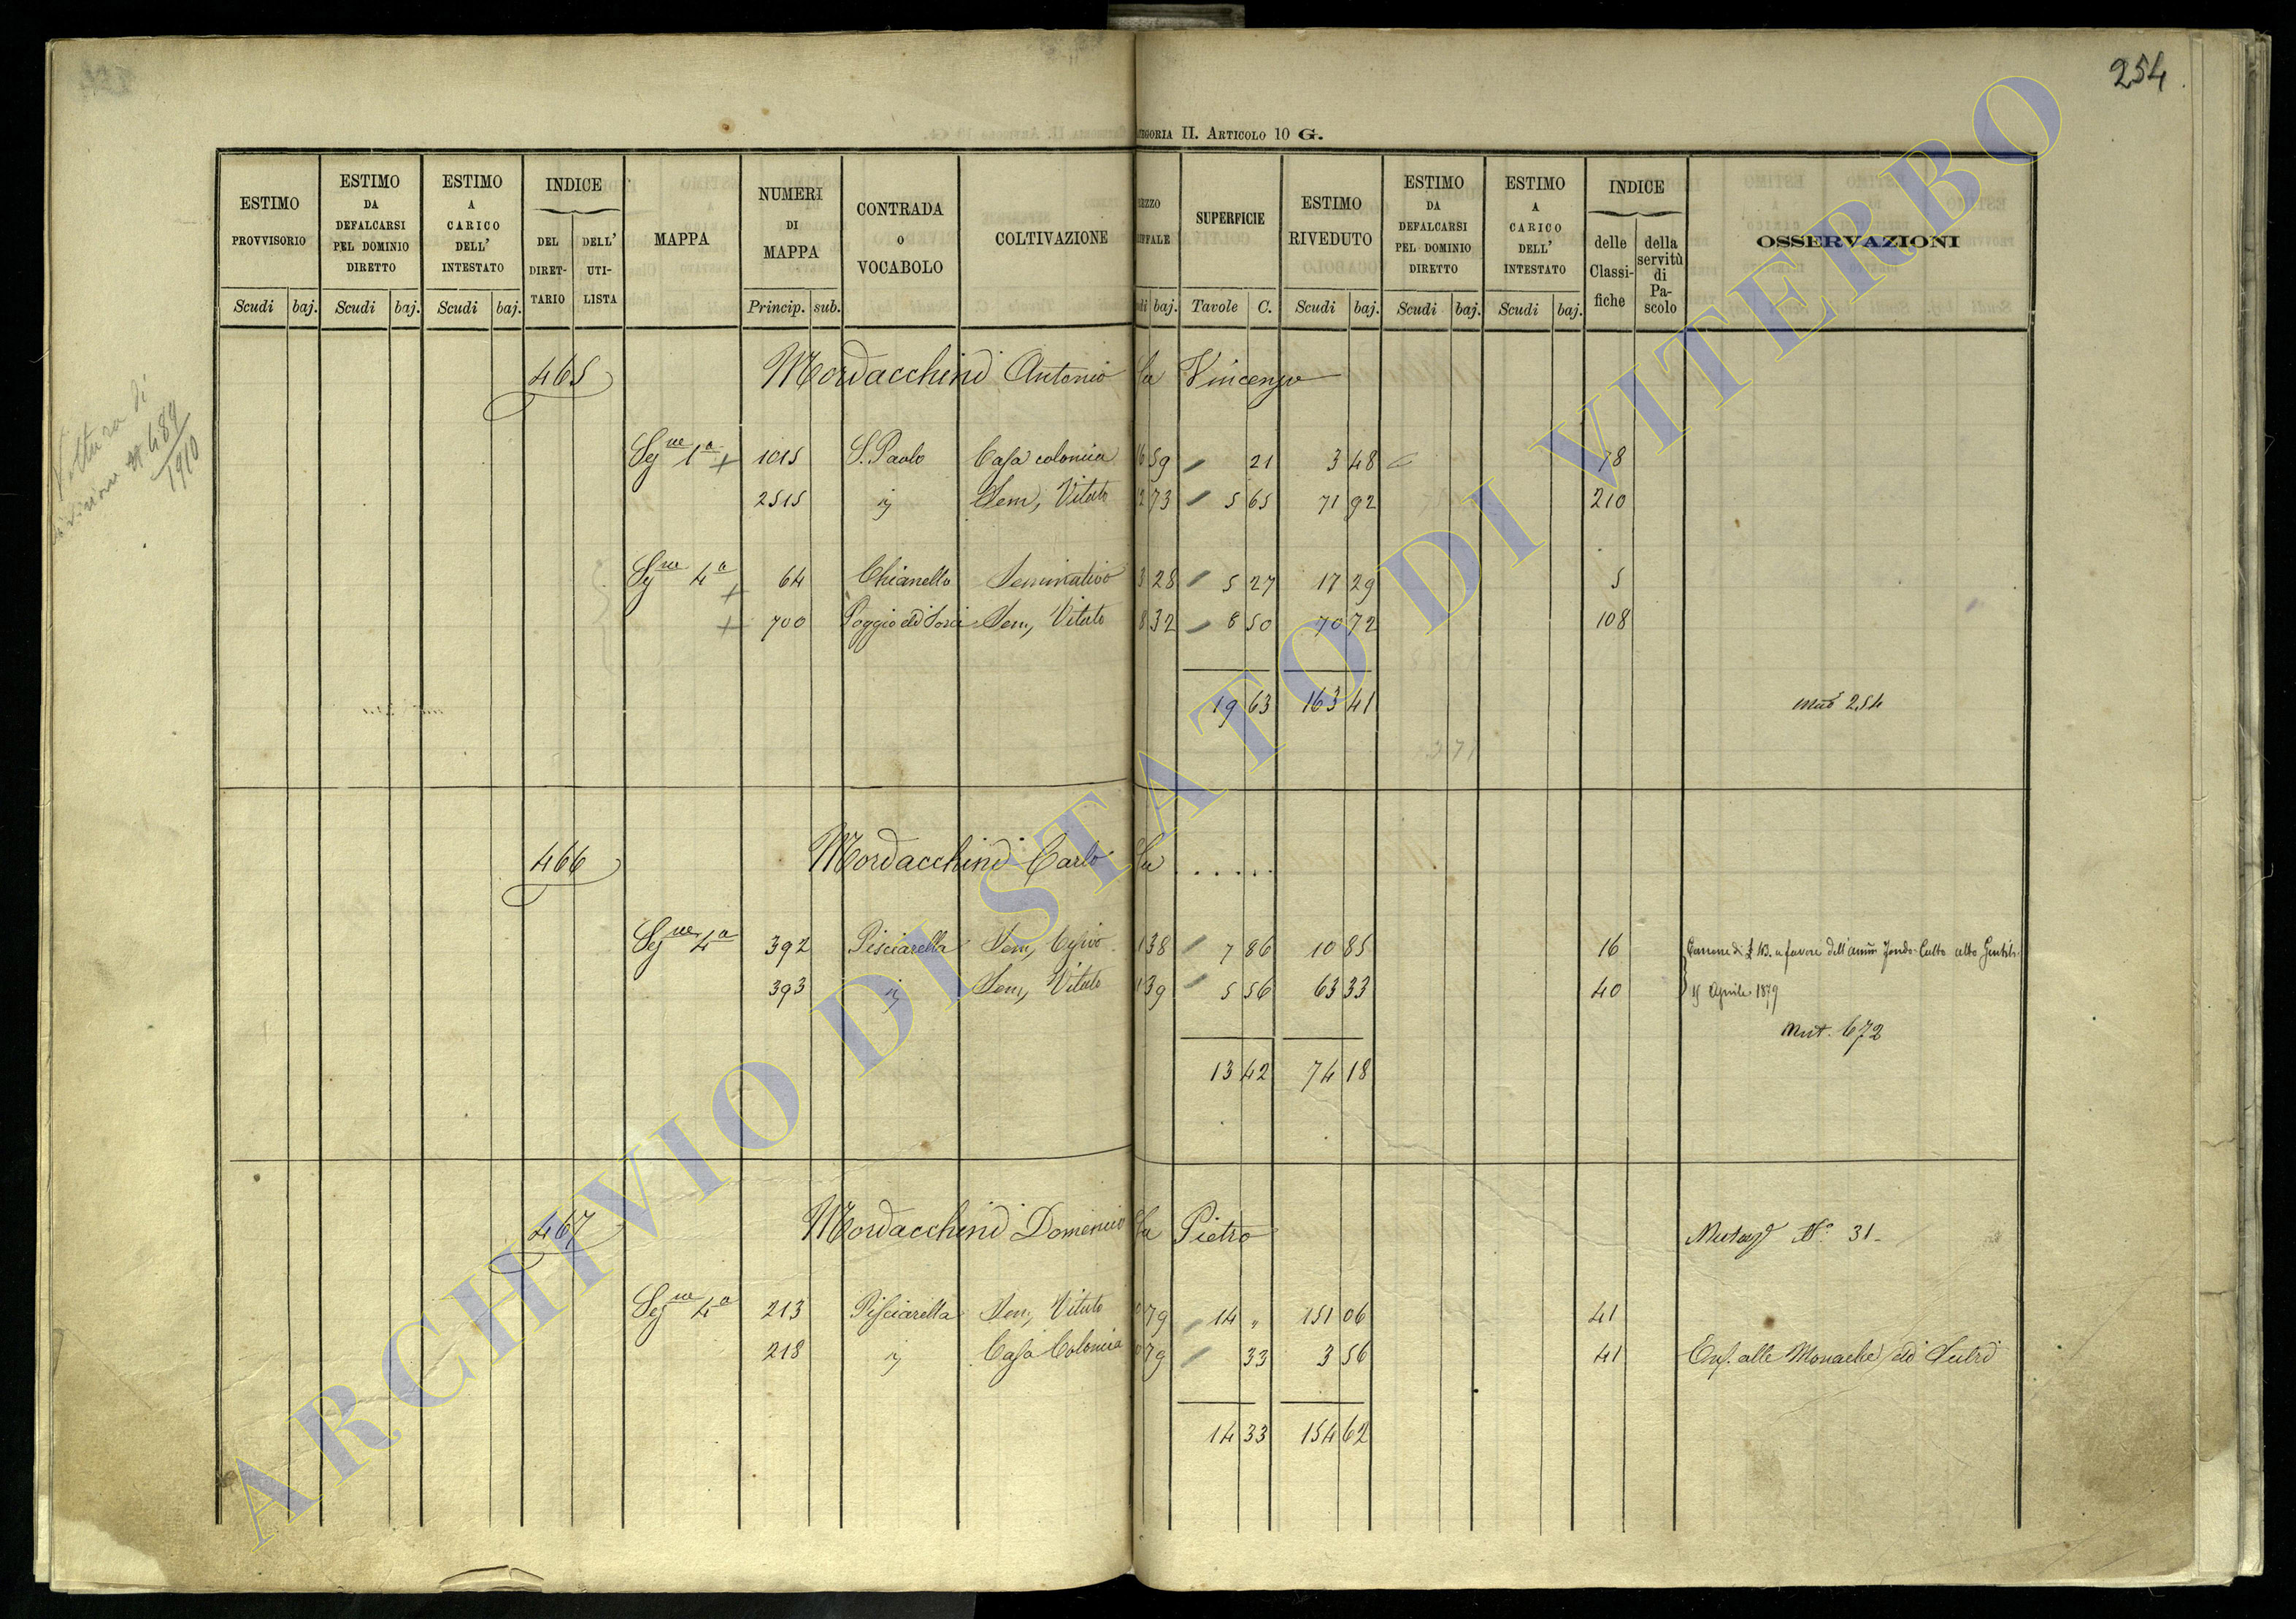 254
CATEGORIA II. ARTICOLO 10 G.
ESTIMO PROVVISORIO Scudi baj. ESTIMO DA DEFALCARSI PEL DOMINIO DIRETTO Scudi baj. ESTIMO A CARICO DELL' INTESTATO Scudi baj. INDICE DEL DIRETTARIO DELL' UTILISTA MAPPA NUMERI DI MAPPA Princip. sub. CONTRADA O VOCABOLO COLTIVAZIONE SUPERFICIE Tavole C. ESTIMO RIVEDUTO Scudi baj. ESTIMO DA DEFALCARSI PEL DOMINIO DIRETTO Scudi baj. ESTIMO A CARICO DELL' INTESTATO Scudi baj. INDICE delle Classifiche della servitù di Pascolo OSSERVAZIONI
465 Mordacchini Antonio fu Vincenzo
Voltura di
divisione N. 489
1910
Segne 1a + 1015 S. Paolo Casa colonica 16 59 21 3 48 78
2515 id Sem, Vitato 2 73 5 65 71 92 210
Segne 4a + 64 Chianello Seminativo 3 28 5 27 17 29 5
+ 700 Poggio di Sorci Sem, Vitato 8 32 8 50 70 72 108
19 63 163 41 Mut 254
466 Mordacchini Carlo fu .....
Segne 4a 392 Pisciarella Sem, 1 38 7 86 10 85 16 Canone di £ 113. a favore dell'Amm Fondo Culto
393 id Sem, Vitato 1 39 5 56 63 33 40 15 Aprile 1879
Mut. 672
13 42 74 18
467 Mordacchini Domenico fu Pietro N° 31
Segne 4a 213 Pisciarella Sem, Vitato 79 14 " 151 06 41
218 id Casa Colonica 79 33 3 56 41 Enf. alle Monache di Sutri
14 33 154 62
ARCHIVIO DI STATO DI VITERBO